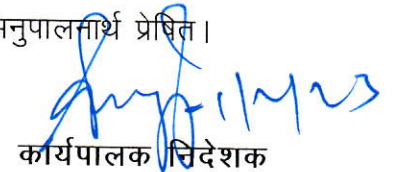 अनुपालनार्थ प्रेषित।
1/2/23
कार्यपालक निदेशक